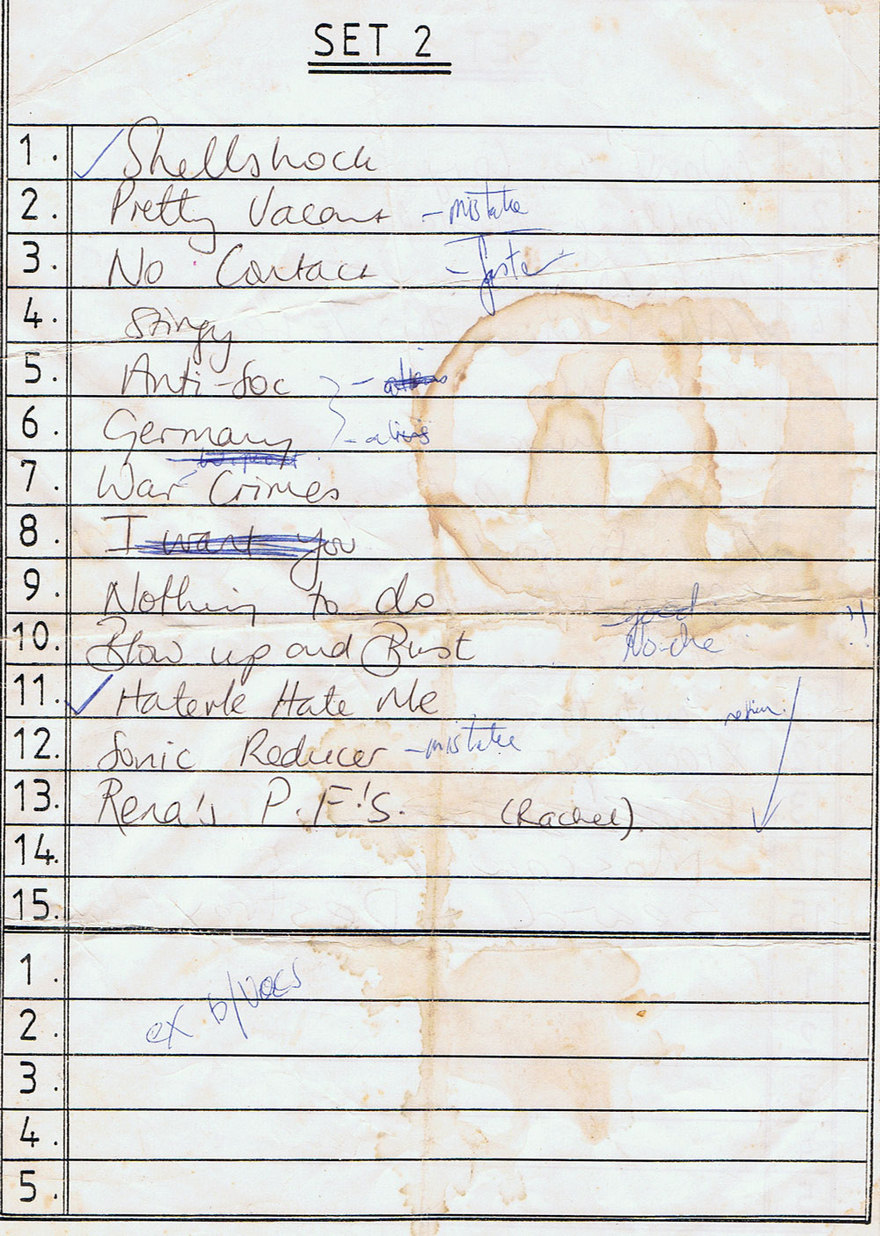 SET 2
1. Shellshock
2. Pretty Vacant - mistake
3. No Contact - faster
4. Stingy
5. Anti-Soc
6. Germany
7. War Crimes
8. I want you
9. Nothing to do - good
10. Blow up and Bust No-one
11. Haterle Hate Me
12. Sonic Reducer - mistake
13. Rena's P.F.'S. (Rachel)
14.
15.
1.
2. ex b/vocs
3.
4.
5.